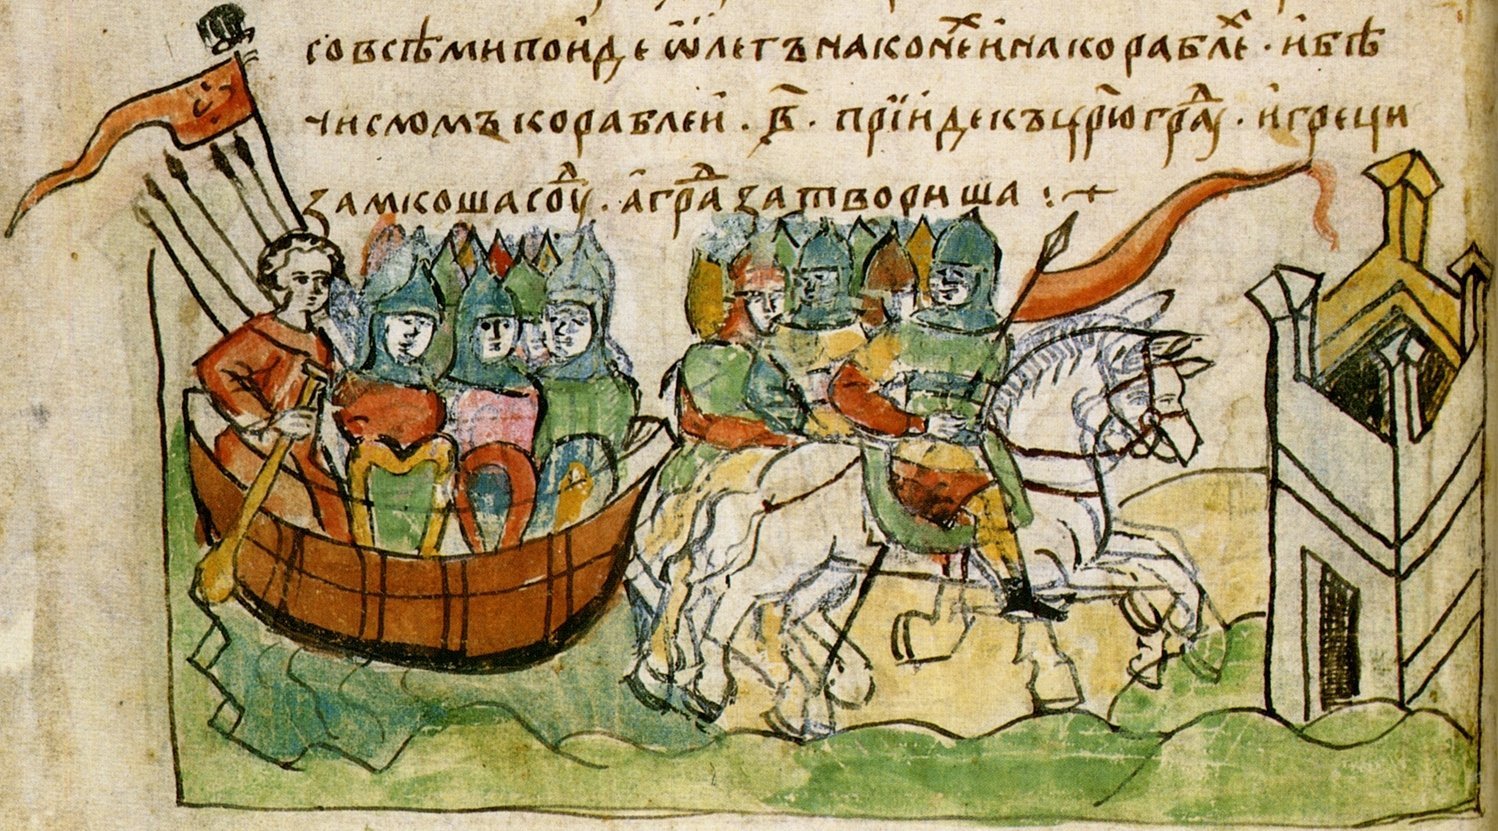 совсѣми поиде ѿлегъ на конехⷯ и на кораблеⷯ · и бѣ
числомъ кораблеи · в҃ · прїиде къ цр҃югрⷣаꙋ · и греци
замкоша соуⷣ · а граⷣ затвориша :+